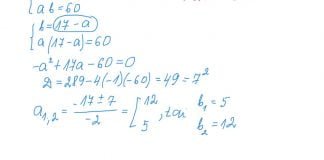 ab=60
b=17-a
a(17-a)=60
-a²+17a-60=0
D=289-4(-1)(-60)=49=7²
a₁,₂=(-17±7)/(-2)=[12
5
b₁=5
b₂=12